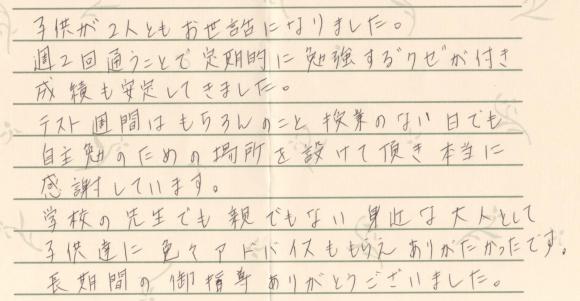 子供が2人ともお世話になりました。
週2回通うことで定期的に勉強する"クセ"が付き
成績も安定してきました。
テスト週間はもちろんのこと授業のない日でも
自主勉のための場所を設けて頂き本当に
感謝しています。
学校の先生でも親でもない身近な大人として
子供達に色々アドバイスももらえありがたかったです。
長期間の御指導ありがとうございました。